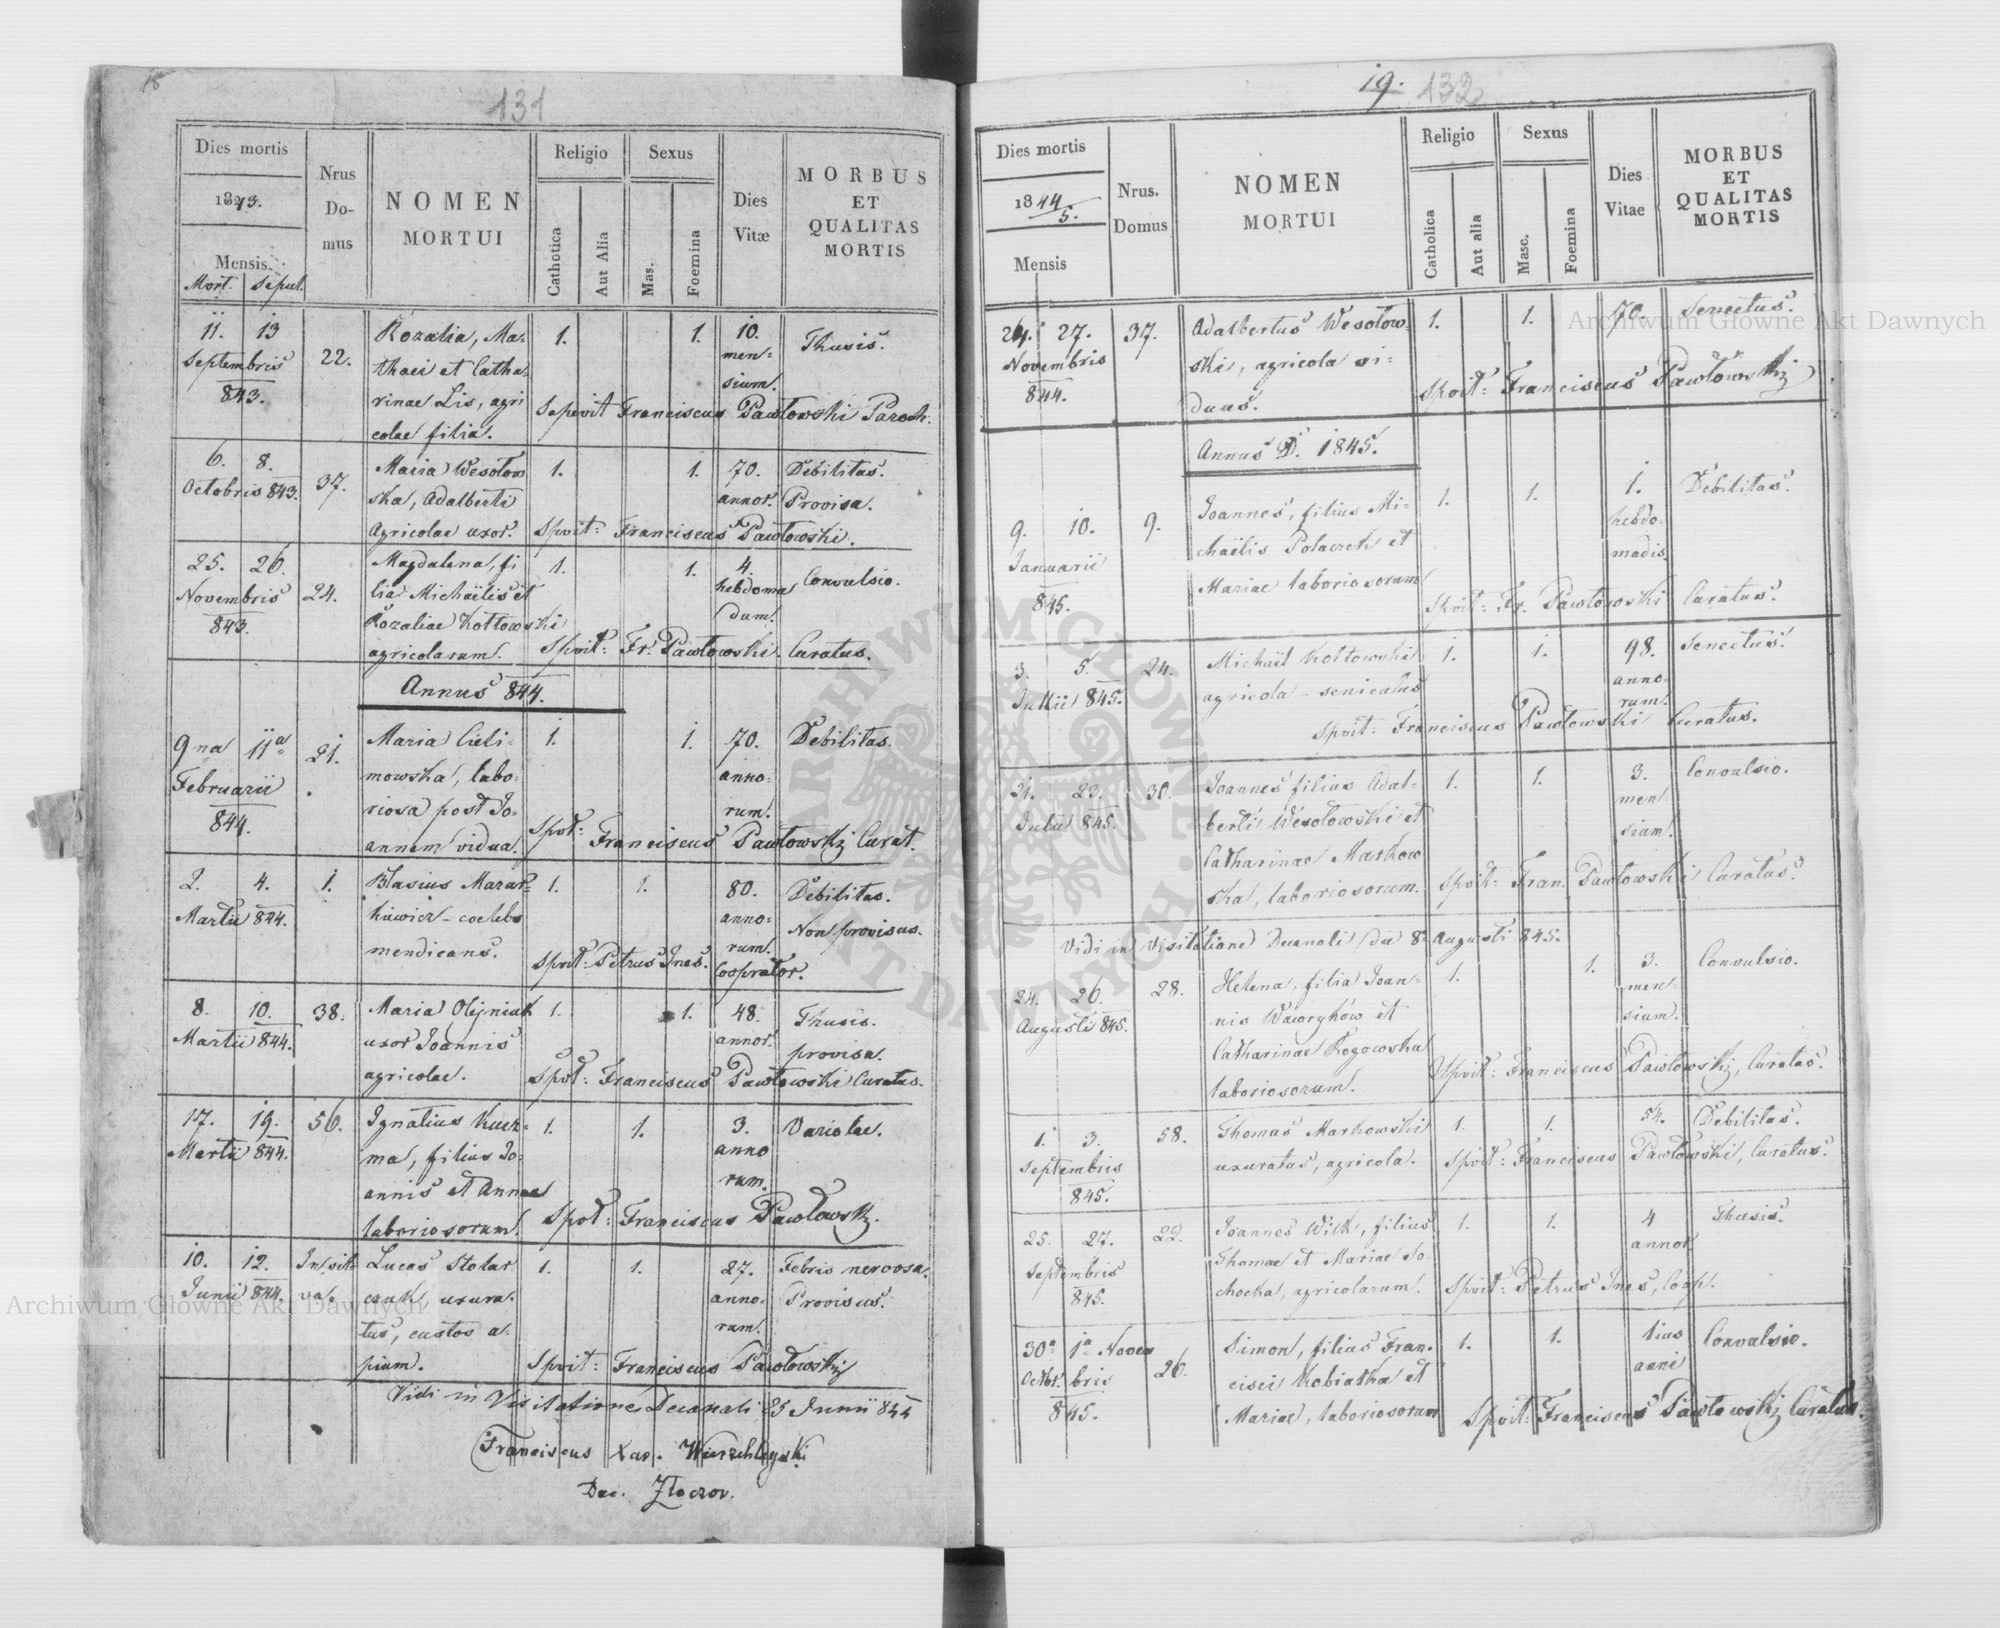 18
131
Dies mortis
1843.
Mensis
Mort. Sepul.
Nrus
Do-
mus
NOMEN
MORTUI
Religio
Cathotica
Aut Alia
Sexus
Mas.
Foemina
Dies
Vitæ
MORBUS
ET
QUALITAS
MORTIS
11. 13 Rozalia, Ma- 1. 1. 10. Thusis.
Septembris 22. thaei et Catha- men-
843. rinae Lis, agri sium.
Sepevit Franciscus Pawłowski Paroch.
colae filia.
6. 8. Maria Wesołow 1. 1. 70. Debilitas.
Octobris 843. 37. ska, Adalberti annor. Provisa.
Agricolae uxor. Spvit: Franciscus Pawłowski.
25. 26. Magdalena, fi 1. 1. 4. Convulsio.
Novembris 24. lia Michaëlis et hebdoma
843. Rozaliae Kottowski dum.
agricolarum. Spvit: Fr. Pawłowski. Curatus.
Annus 844.
9na 11a 21. Maria Cieli- 1. 1. 70. Debilitas.
Februarii mowska, labo- anno-
844. riosa post Jo- rum.
annem vidua. Spvt: Franciscus Pawłowski Curat.
2. 4. 1. Blasius Mazar- 1. 1. 80. Debilitas.
Martii 844. kiewicz - coelebs anno- Non provisus.
mendicans. rum.
Spvit: Petrus Ines. Cooprator.
8. 10. 38. Maria Olejniuk 1. 1. 48. Thusis.
Martii 844. uxor Joannis annor. provisa.
agricolae. Spvt: Franciscus Pawłowski Curatus.
17. 19. 56. Ignatius Kucz- 1. 1. 3. Variolae.
Martii 844. ma, filius Jo- anno
annis et Annae rum.
laboriosorum. Spvt: Franciscus Pawłowski.
10. 12. Lucas Stolar 1. 1. 27. Febris nervosa.
Junii 844. czuk, uxura- anno- Provisus.
tus, custos a- rum.
pium. Spvit: Franciscus Pawłowski
Vidi in Visitatione Decanali 25 Junii 844
Franciscus Xav.
Dec. Zloczov.
19. 132
Dies mortis
1844/5.
Mensis
Nrus.
Domus
NOMEN
MORTUI
Religio
Catholica
Aut alia
Sexus
Masc.
Foemina
Dies
Vitae
MORBUS
ET
QUALITAS
MORTIS
24. 27. 37. Adalbertus Wesołow- 1. 1. 70. Senectus.
Novembris ski, agricola vi-
844. duus. Spvit: Franciscus Pawłowski
Annus D. 1845.
9. 10. 9. Joannes, filius Mi- 1. 1. 1. Debilitas.
Januarii chaëlis Polaczek et hebdo-
845. Mariae laboriosorum madis.
Spvit: Fr. Pawłowski Curatus.
3. 5. 24. Michaël Kottowski 1. 1. 98. Senectus.
Julii 845. agricola - seniculus anno-
rum.
Spvit: Franciscus Pawłowski Curatus.
21. 23. 30. Joannes filius Adal- 1. 1. 3. Convulsio.
Julii 845. berti Wesołowski et men-
Catharinae Markow sium.
ska, laboriosorum. Spvit: Fran. Pawłowski Curatus.
Vidi in Visitatione Decanali die 8 Augusti 845.
24. 26. 28. Helena, filia Joan- 1. 1. 3. Convulsio.
Augusti 845. nis Wawryków et men-
Catharinae Rogowska sium.
laboriosorum. Spvit: Franciscus Pawłowski, Curatus.
1. 3. 58. Thomas Markowski 1. 1. 54. Debilitas.
Septembris uxuratus, agricola. Spvit: Franciscus Pawłowski, Curatus.
845.
25. 27. 22. Joannes Wilk, filius 1. 1. 4 Thusis.
Septembris Thomae et Mariae So annor
845. chocka, agricolarum. Spvit: Petrus Ines, Coop.
30a 1a Novem 26. Simon, filius Fran- 1. 1. 1ius Convulsio.
Octbr. bris cisci Kobiatka et anni
845. Mariae, laboriosorum Spvit: Franciscus Pawłowski Curatus.
Archiwum Główne Akt Dawnych
Archiwum Główne Akt Dawnych
ARCHIWUM GŁÓWNE AKT DAWNYCH